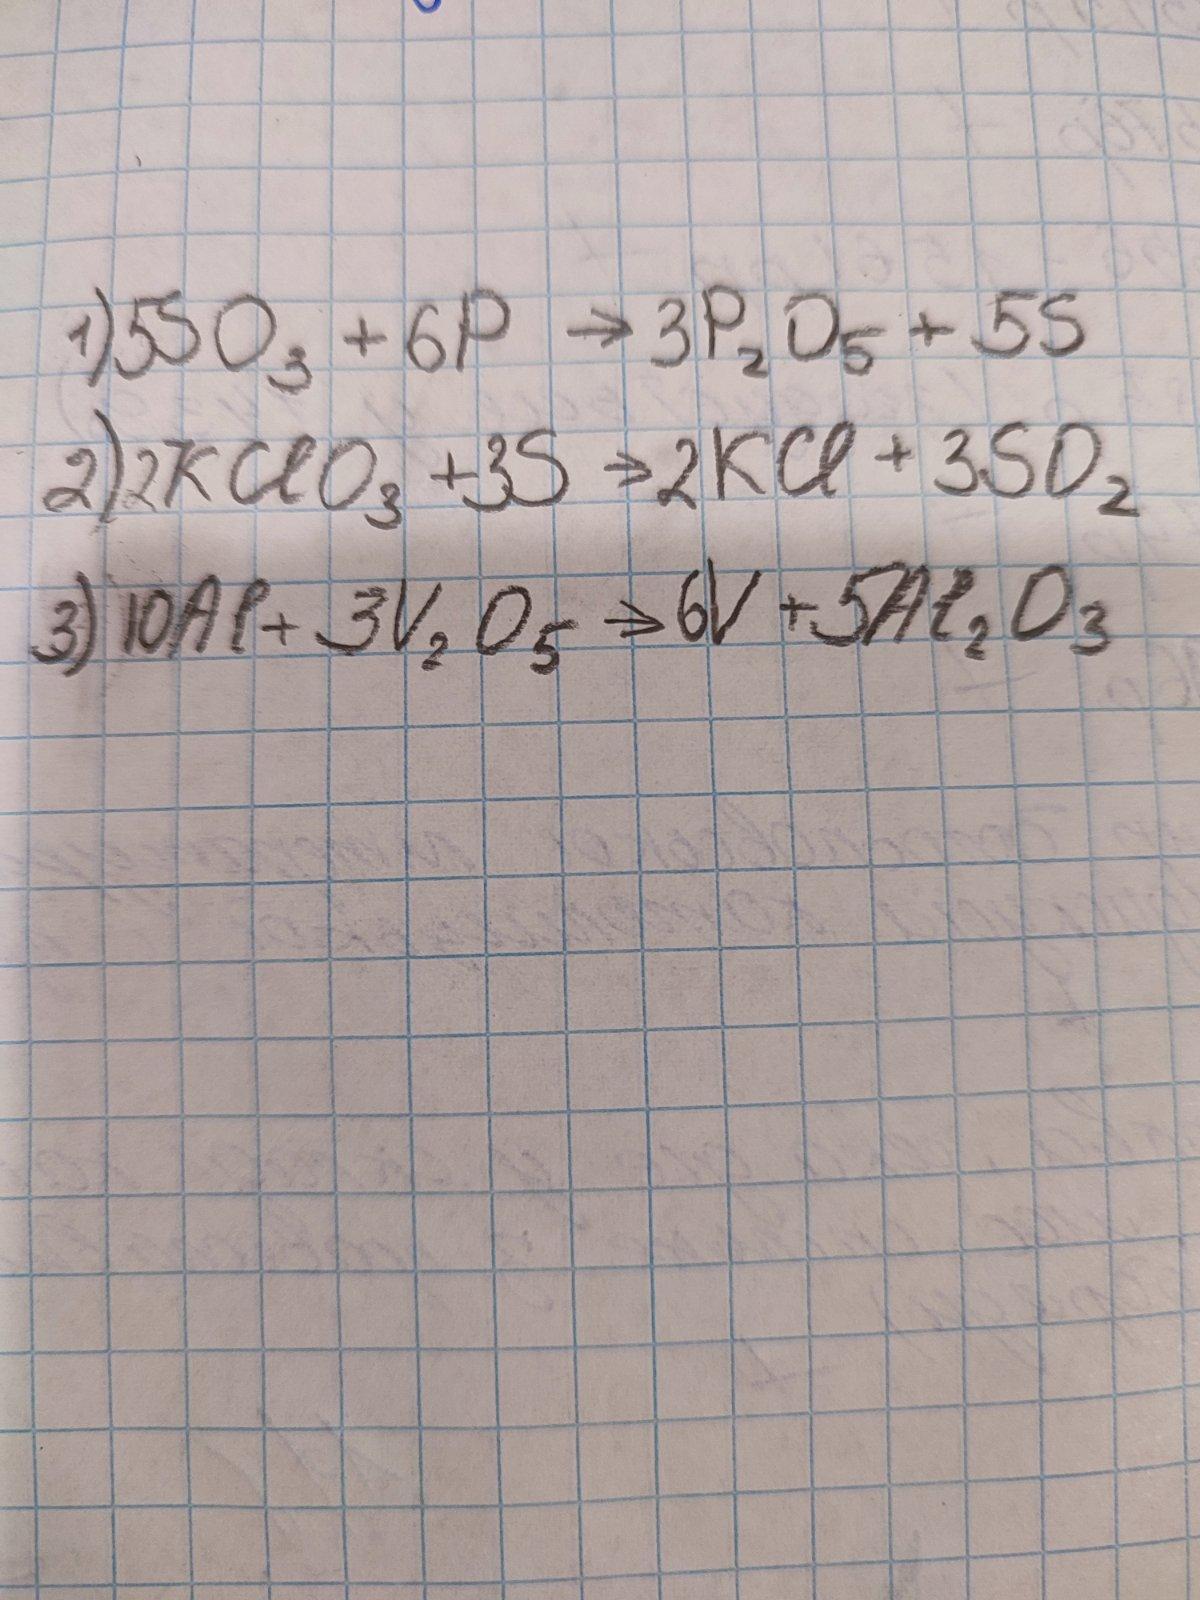 1) 5SO₃ + 6P → 3P₂O₅ + 5S
2) 2KClO₃ + 3S → 2KCl + 3SO₂
3) 10Al + 3V₂O₅ → 6V + 5Al₂O₃